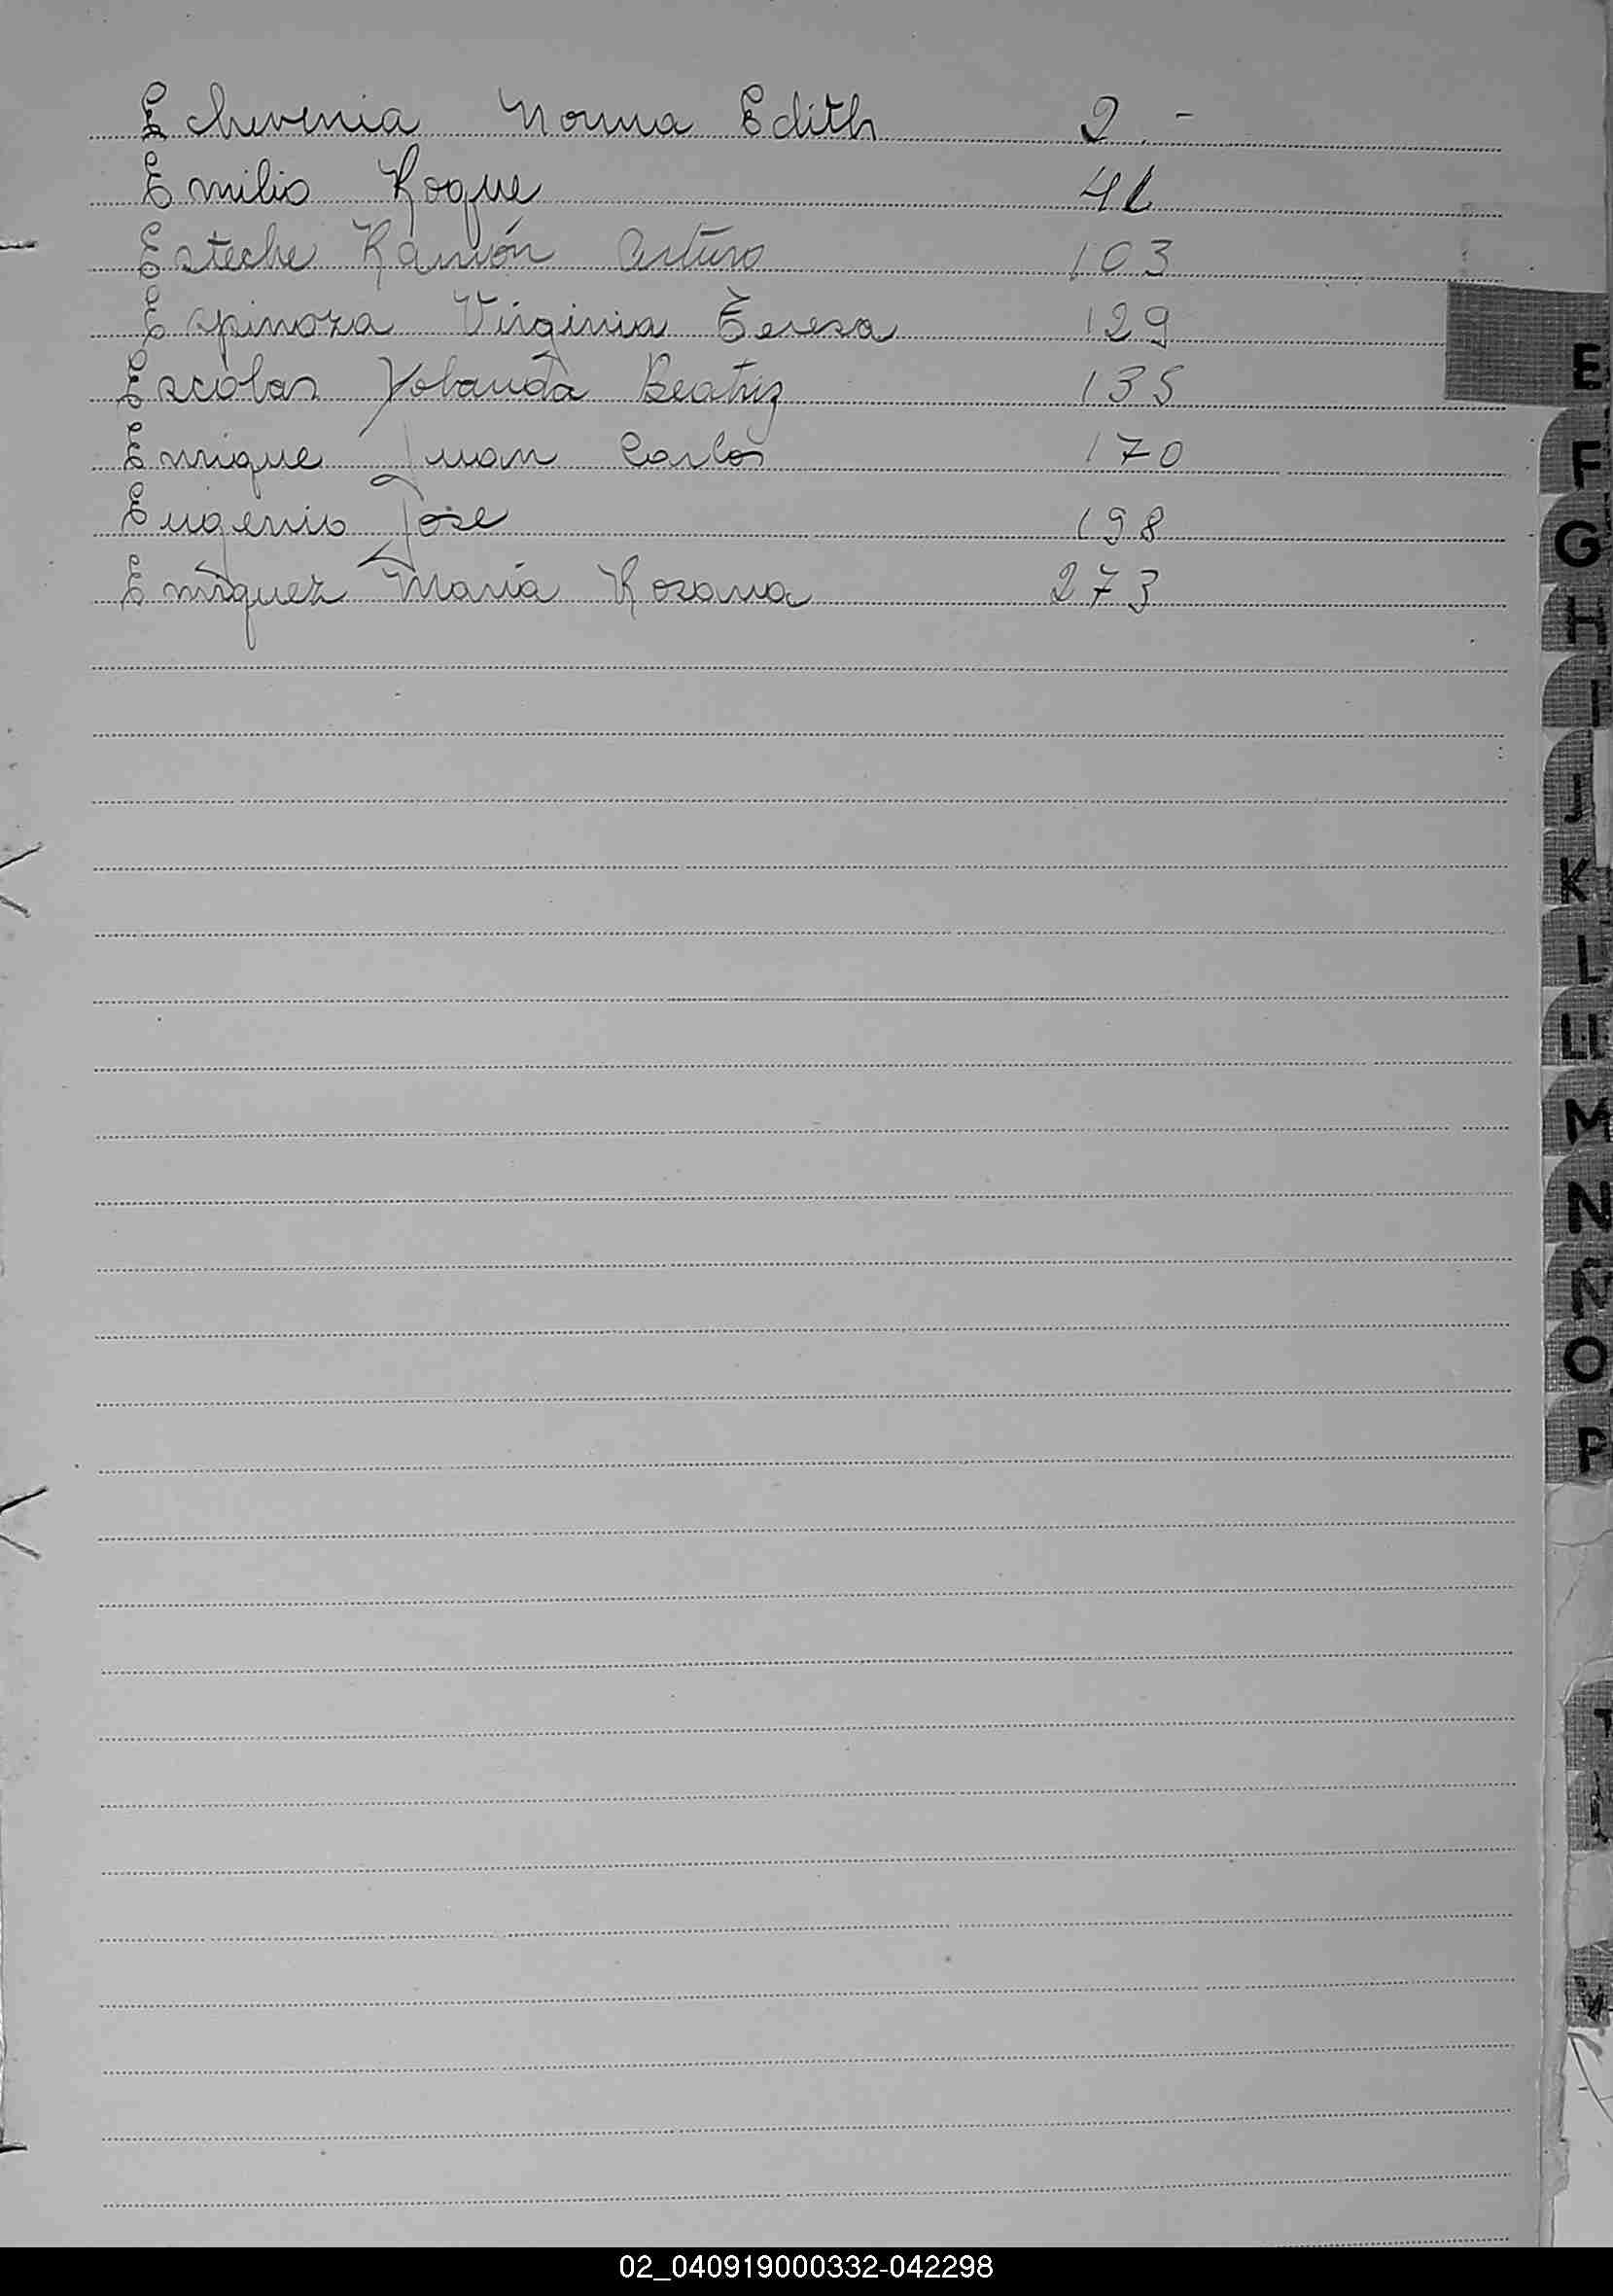 Echeverria Norma Edith 2.-
Emilio Roque
Esteche Ramón Arturo 103
Espinoza Virginia Teresa 129
Escolar Yolanda Beatriz 135
Enrique Juan Carlos 170
Eugenio Jose 198
Enriquez María Rosana 273
E
F
G
H
I
J
K
L
LL
M
N
Ñ
O
P
T
02_040919000332-042298